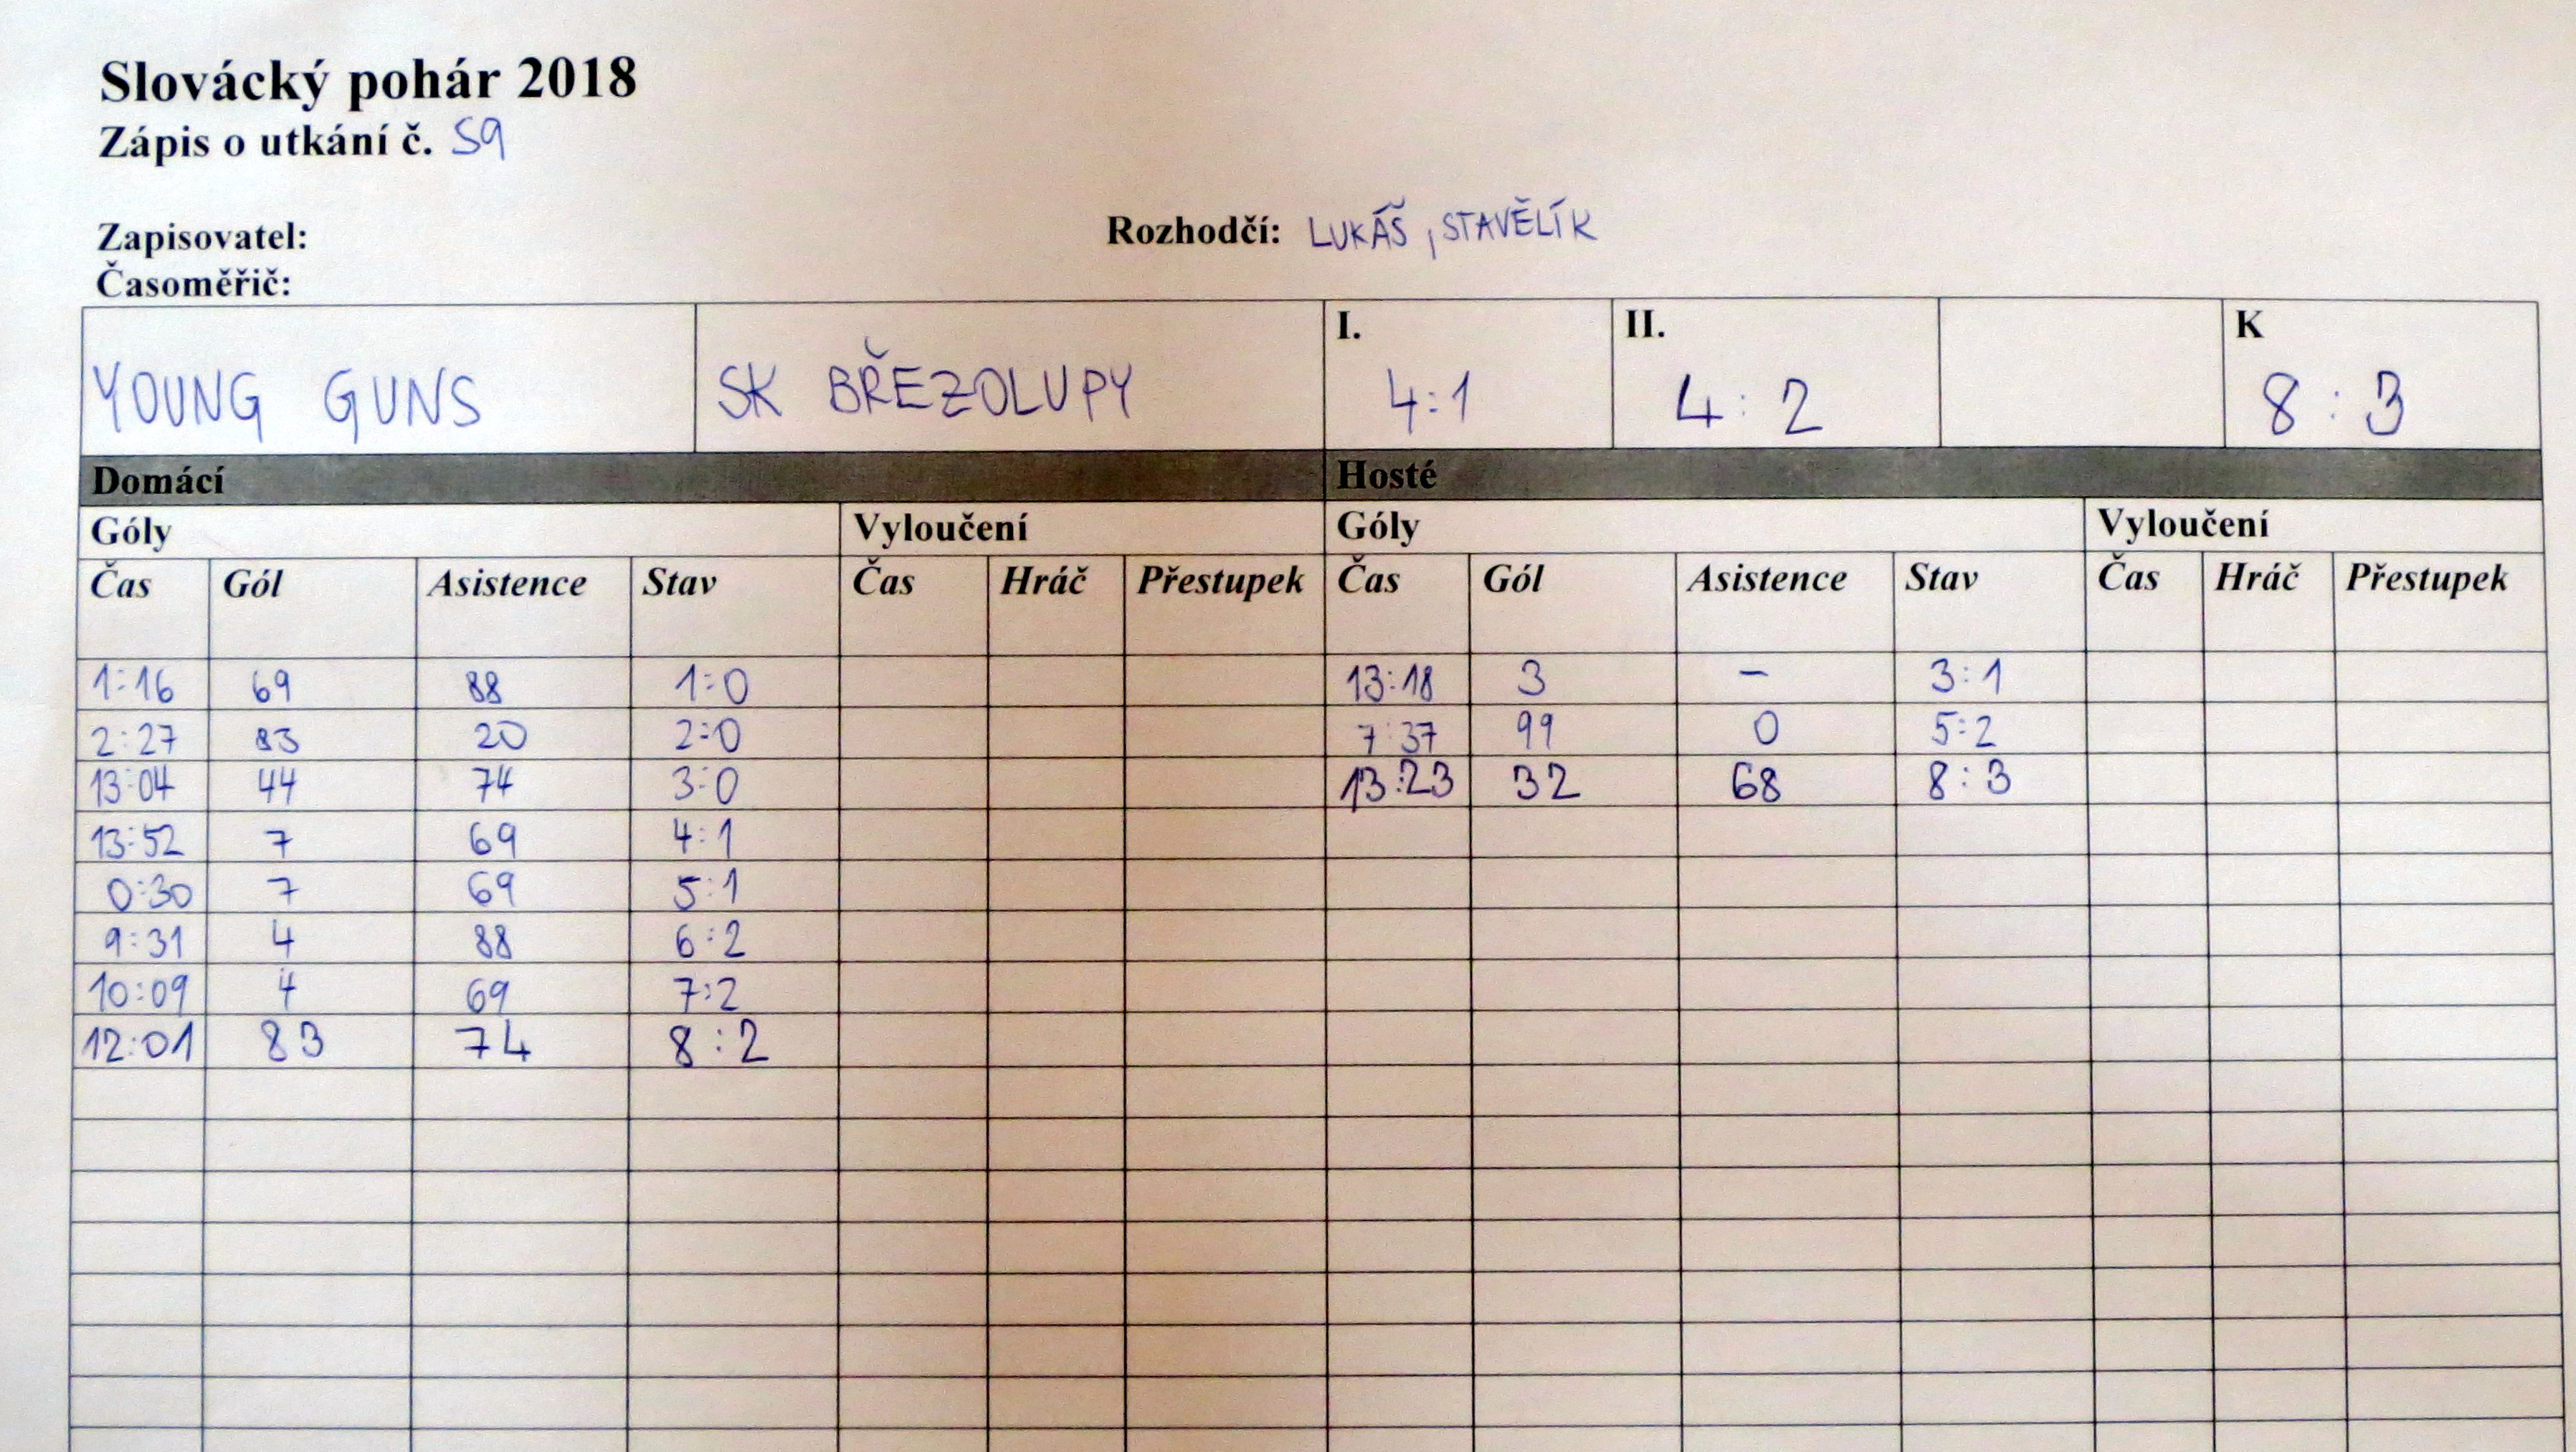 Slovácký pohár 2018
Zápis o utkání č. 59
Zapisovatel: Rozhodčí: LUKÁŠ, STAVĚLÍK
Časoměřič:
I. II. K
YOUNG GUNS SK BŘEZOLUPY 4:1 4:2 8:3
Domácí Hosté
Góly Vyloučení Góly Vyloučení
Čas Gól Asistence Stav Čas Hráč Přestupek Čas Gól Asistence Stav Čas Hráč Přestupek
1:16 69 88 1:0 13:18 3 – 3:1
2:27 83 20 2:0 7:37 99 0 5:2
13:04 44 74 3:0 13:23 32 68 8:3
13:52 7 69 4:1
0:30 7 69 5:1
9:31 4 88 6:2
10:09 4 69 7:2
12:01 83 74 8:2